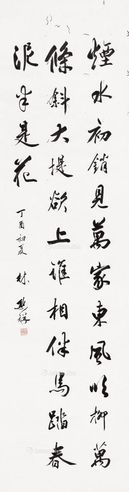 煙水初銷見萬家東風吹柳萬
條斜大堤欲上誰相伴馬踏春
泥半是花
丁酉初夏 林